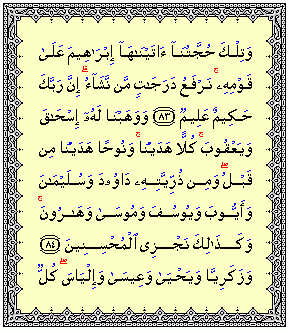 وَتِلْكَ حُجَّتُنَآ ءَاتَيْنَٰهَآ إِبْرَٰهِيمَ عَلَىٰ
قَوْمِهِۦ ۚ نَرْفَعُ دَرَجَٰتٍ مَّن نَّشَآءُ ۗ إِنَّ رَبَّكَ
حَكِيمٌ عَلِيمٌ ﴿٨٣﴾ وَوَهَبْنَا لَهُۥٓ إِسْحَٰقَ
وَيَعْقُوبَ ۚ كُلًّا هَدَيْنَا ۚ وَنُوحًا هَدَيْنَا مِن
قَبْلُ ۖ وَمِن ذُرِّيَّتِهِۦ دَاوُۥدَ وَسُلَيْمَٰنَ
وَأَيُّوبَ وَيُوسُفَ وَمُوسَىٰ وَهَٰرُونَ ۚ
وَكَذَٰلِكَ نَجْزِى ٱلْمُحْسِنِينَ ﴿٨٤﴾
وَزَكَرِيَّا وَيَحْيَىٰ وَعِيسَىٰ وَإِلْيَاسَ ۖ كُلٌّ